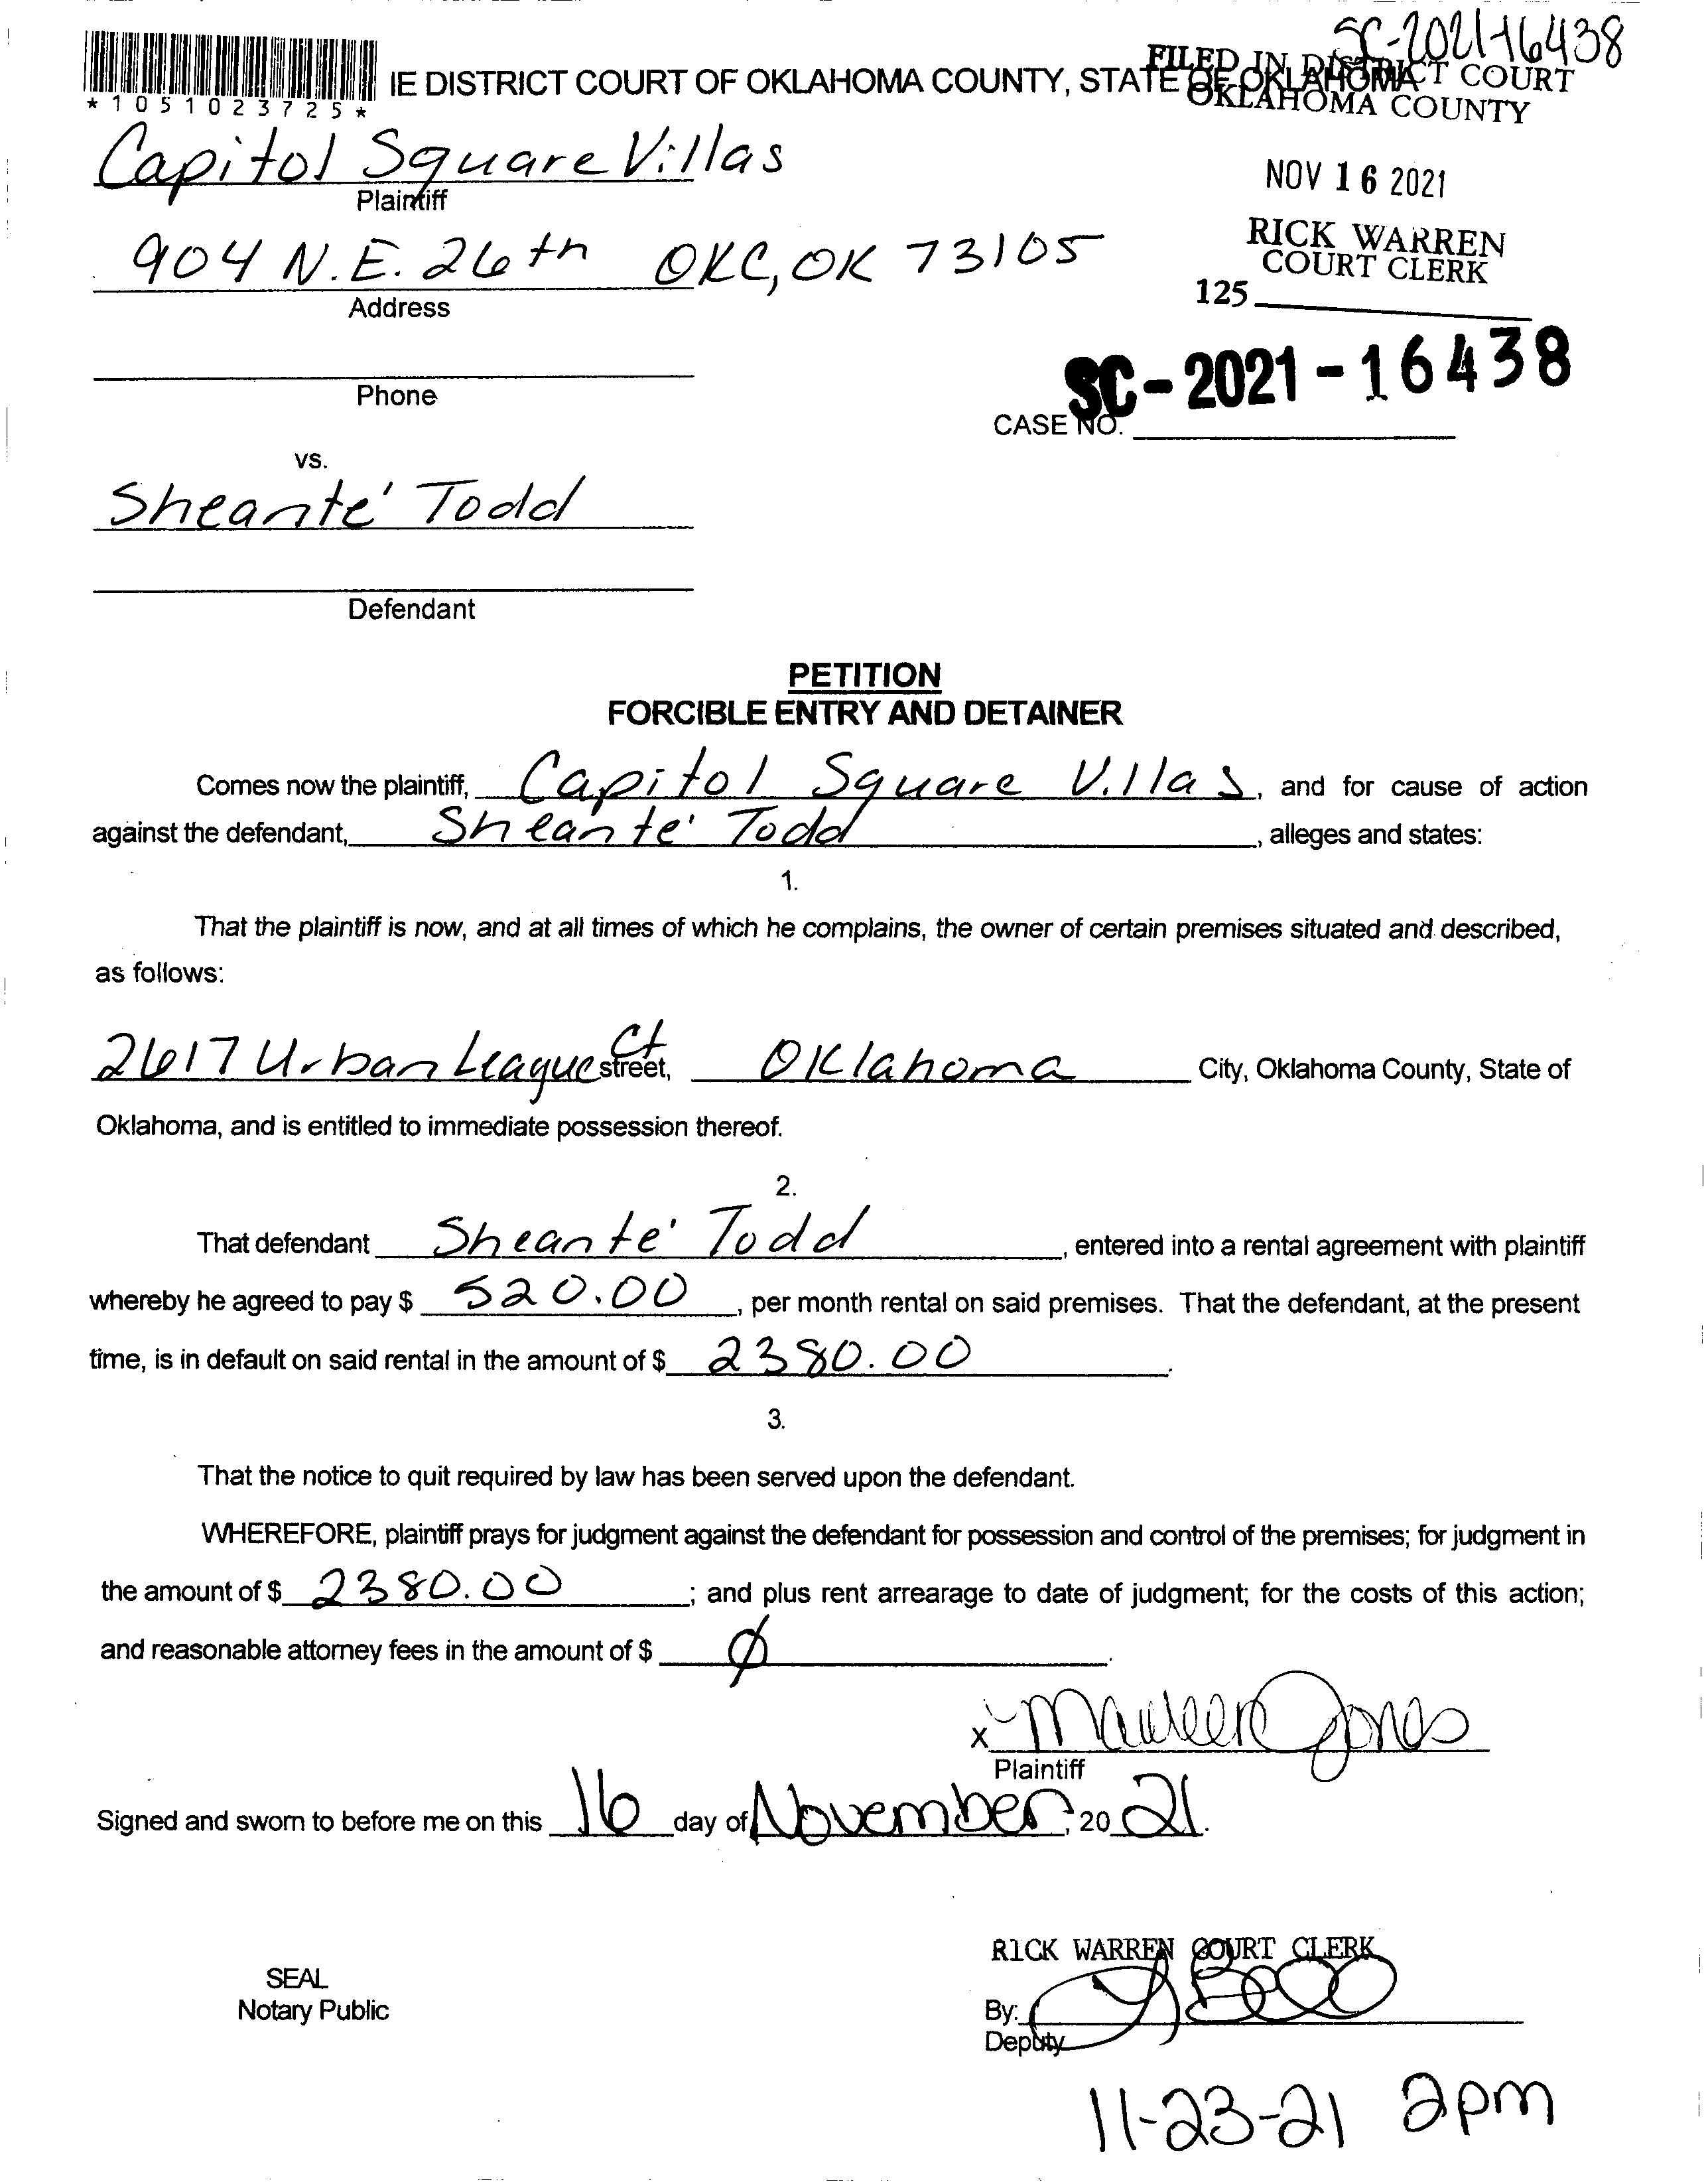 SC-2021-16438
*1051023725*
IE DISTRICT COURT OF OKLAHOMA COUNTY, STATE OF OKLAHOMA
FILED IN DISTRICT COURT
OKLAHOMA COUNTY
Capitol Square Villas
Plaintiff
NOV 16 2021
904 N.E. 26th OKC, OK 73105
Address
RICK WARREN
COURT CLERK
125
Phone
SC-2021-16438
CASE NO.
vs.
Sheante' Todd
Defendant
PETITION
FORCIBLE ENTRY AND DETAINER
Comes now the plaintiff, Capitol Square Villas, and for cause of action
against the defendant, Sheante' Todd, alleges and states:
1.
That the plaintiff is now, and at all times of which he complains, the owner of certain premises situated and described,
as follows:
2617 Urban League Ct street, Oklahoma City, Oklahoma County, State of
Oklahoma, and is entitled to immediate possession thereof.
2.
That defendant Sheante' Todd, entered into a rental agreement with plaintiff
whereby he agreed to pay $ 520.00, per month rental on said premises. That the defendant, at the present
time, is in default on said rental in the amount of $ 2380.00.
3.
That the notice to quit required by law has been served upon the defendant.
WHEREFORE, plaintiff prays for judgment against the defendant for possession and control of the premises; for judgment in
the amount of $ 2380.00; and plus rent arrearage to date of judgment; for the costs of this action;
and reasonable attorney fees in the amount of $ Ø.
x Maureen Jones
Plaintiff
Signed and sworn to before me on this 16 day of November, 20 21.
RICK WARREN COURT CLERK
SEAL
Notary Public
By:
Deputy
11-23-21 2pm